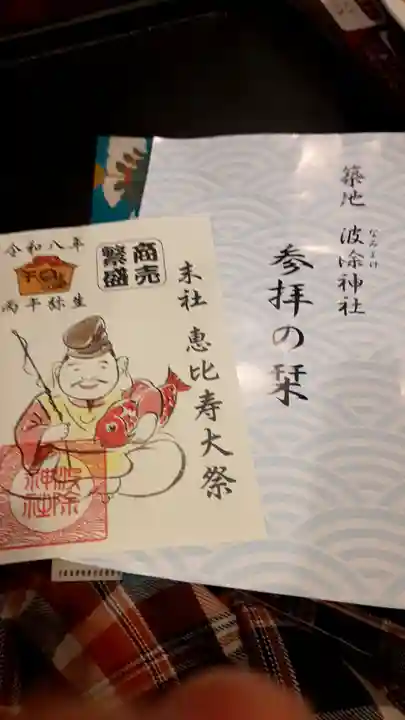 築地 波除神社
なみよけ
参拝の栞
商売
繁盛
末社 恵比寿大祭
令和八年
丙午弥生
波除
神社